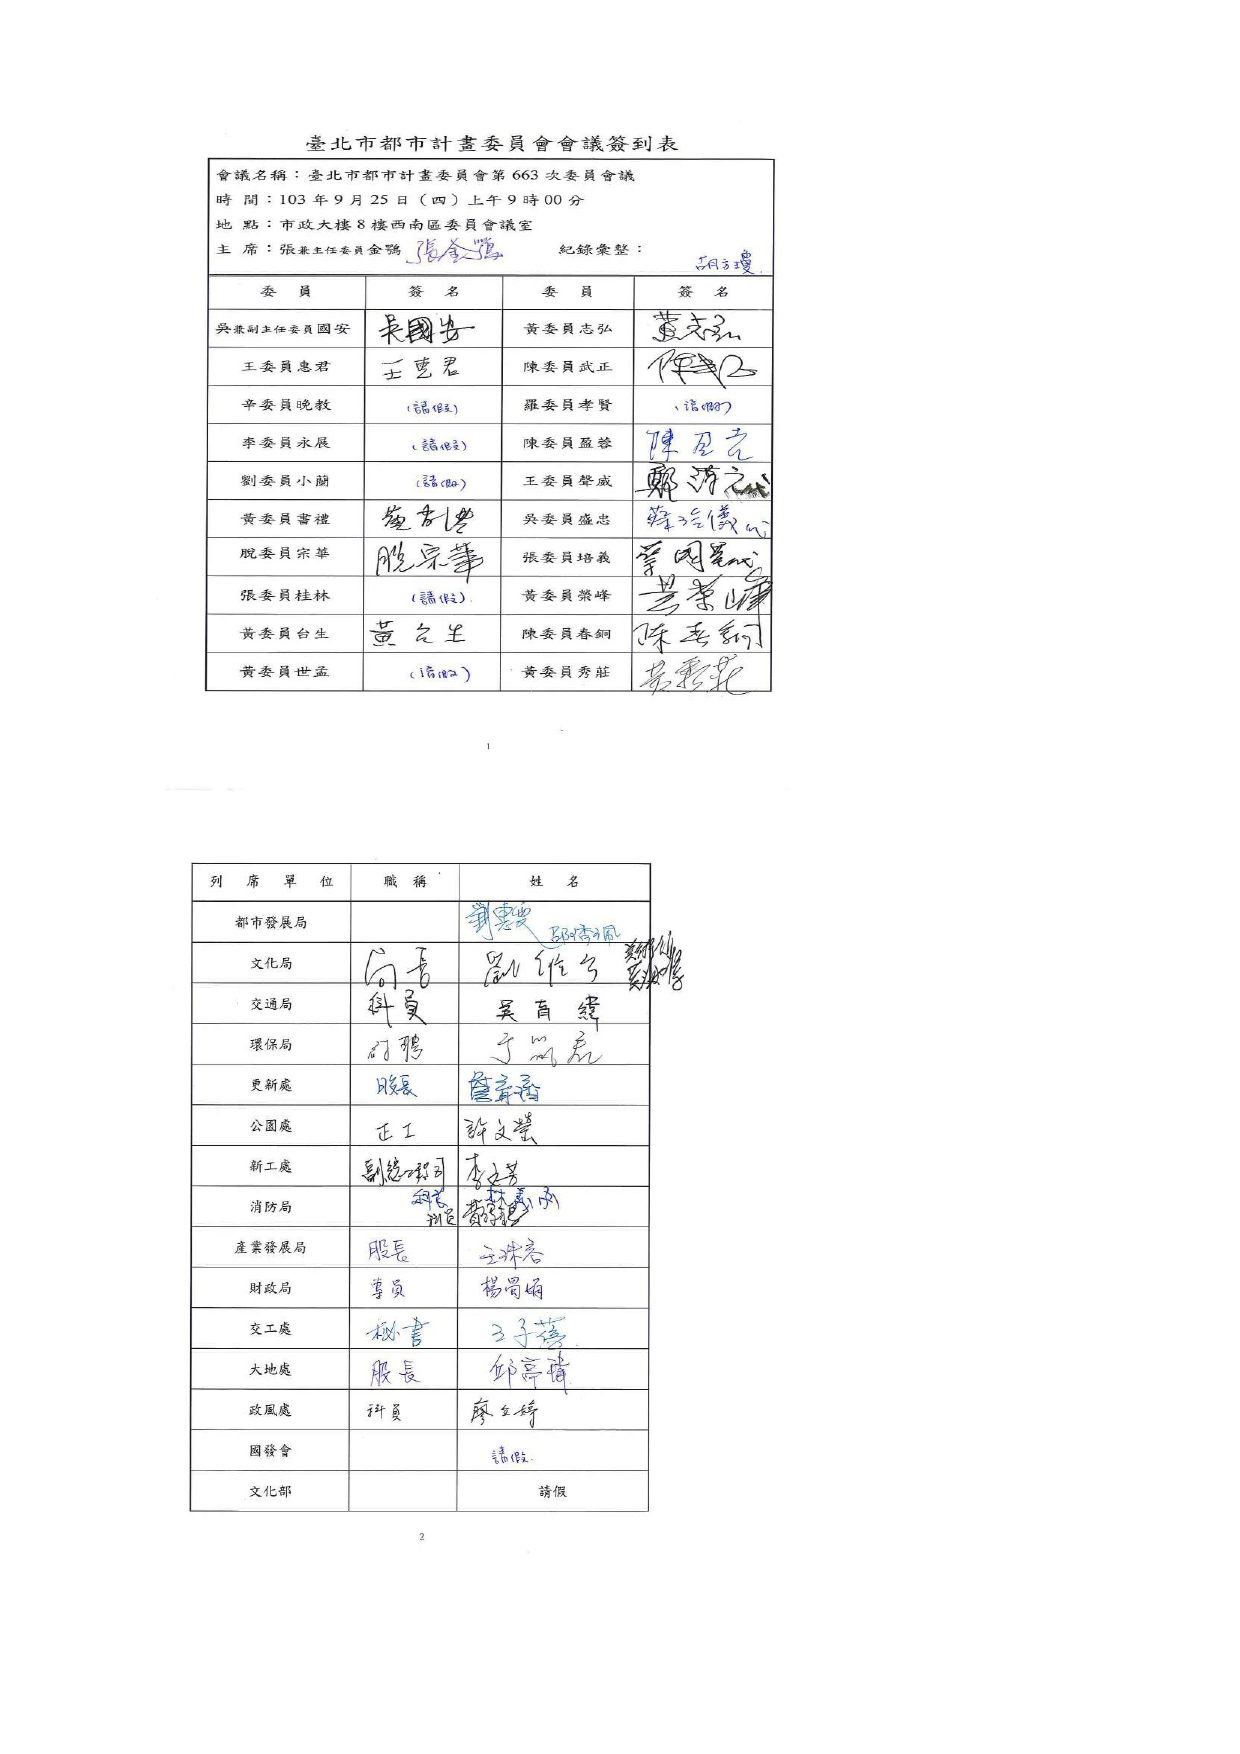 臺北市都市計畫委員會會議簽到表
會議名稱：臺北市都市計畫委員會第 663 次委員會議
時 間：103 年 9 月 25 日（四）上午 9 時 00 分
地 點：市政大樓 8 樓西南區委員會議室
主 席：張兼主任委員金鶚 張金鶚 紀錄彙整： 胡方瓊
委 員 簽 名 委 員 簽 名
吳兼副主任委員國安 吳國安 黃委員志弘 黃志弘
王委員惠君 王惠君 陳委員武正 陳武正
辛委員晚教 （請假） 羅委員孝賢 （請假）
李委員永展 （請假） 陳委員盈蓉 陳
劉委員小蘭 （請假） 王委員聲威 鄭淳元代
黃委員書禮 黃書禮 吳委員盛忠 代
脫委員宗華 脫宗華 張委員培義 代
張委員桂林 （請假） 黃委員榮峰 黃榮峰
黃委員台生 黃台生 陳委員春銅 陳春銅
黃委員世孟 （請假） 黃委員秀莊 黃秀莊
1
列 席 單 位 職 稱 姓 名
都市發展局 劉惠雯 邵琇珮
文化局 局長 劉維公
交通局 科員 吳育緯
環保局 約聘 于
更新處 股長 詹育齊
公園處 正工 許文榮
新工處 副總工程司 李文芳
消防局 科員
產業發展局 股長 王珠容
財政局 專員 楊
交工處 秘書 王子蓓
大地處 股長 邱亭瑋
政風處 科員 廖立婷
國發會 請假
文化部 請假
2